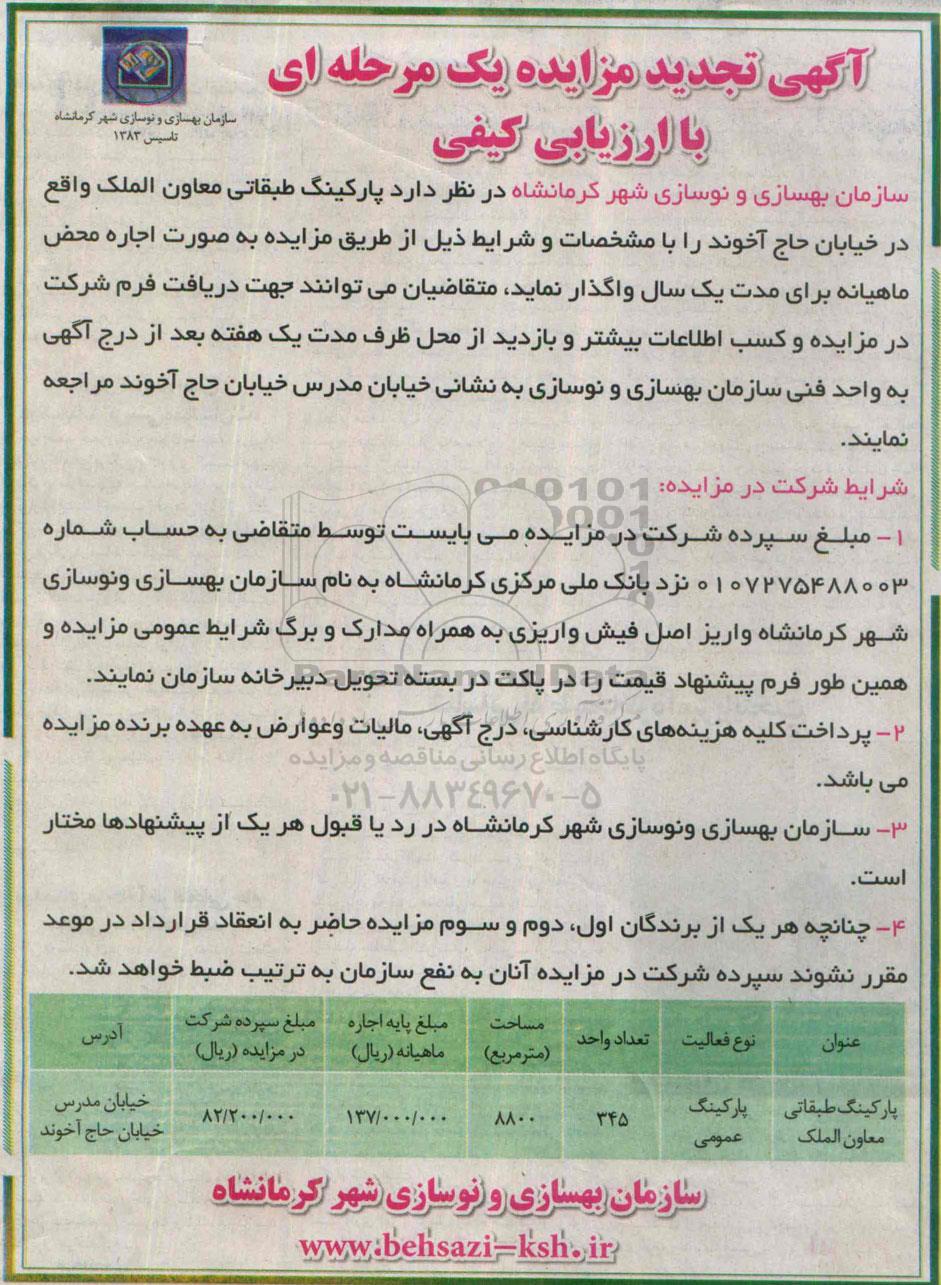 آگهی تجدید مزایده یک مرحله ای
با ارزیابی کیفی
سازمان بهسازی و نوسازی شهر کرمانشاه
تاسیس ۱۳۸۳
سازمان بهسازی و نوسازی شهر کرمانشاه در نظر دارد پارکینگ طبقاتی معاون الملک واقع
در خیابان حاج آخوند را با مشخصات و شرایط ذیل از طریق مزایده به صورت اجاره محض
ماهیانه برای مدت یک سال واگذار نماید، متقاضیان می توانند جهت دریافت فرم شرکت
در مزایده و کسب اطلاعات بیشتر و بازدید از محل ظرف مدت یک هفته بعد از درج آگهی
به واحد فنی سازمان بهسازی و نوسازی به نشانی خیابان مدرس خیابان حاج آخوند مراجعه
نمایند.
شرایط شرکت در مزایده:
۱- مبلغ سپرده شرکت در مزایده می بایست توسط متقاضی به حساب شماره
۰۱۰۷۲۷۵۴۸۸۰۰۳ نزد بانک ملی مرکزی کرمانشاه به نام سازمان بهسازی ونوسازی
شهر کرمانشاه واریز اصل فیش واریزی به همراه مدارک و برگ شرایط عمومی مزایده و
همین طور فرم پیشنهاد قیمت را در پاکت در بسته تحویل دبیرخانه سازمان نمایند.
۲- پرداخت کلیه هزینه‌های کارشناسی، درج آگهی، مالیات وعوارض به عهده برنده مزایده
می باشد.
۳- سازمان بهسازی ونوسازی شهر کرمانشاه در رد یا قبول هر یک از پیشنهادها مختار
است.
۴- چنانچه هر یک از برندگان اول، دوم و سوم مزایده حاضر به انعقاد قرارداد در موعد
مقرر نشوند سپرده شرکت در مزایده آنان به نفع سازمان به ترتیب ضبط خواهد شد.
عنوان
نوع فعالیت
تعداد واحد
مساحت
(مترمربع)
مبلغ پایه اجاره
ماهیانه (ریال)
مبلغ سپرده شرکت
در مزایده (ریال)
آدرس
پارکینگ طبقاتی
معاون الملک
پارکینگ
عمومی
۳۴۵
۸۸۰۰
۱۳۷/۰۰۰/۰۰۰
۸۲/۲۰۰/۰۰۰
خیابان مدرس
خیابان حاج آخوند
سازمان بهسازی و نوسازی شهر کرمانشاه
www.behsazi-ksh.ir
ParsNamadData
پایگاه اطلاع رسانی مناقصه و مزایده
۰۲۱-۸۸۳۴۹۶۷۰-۵